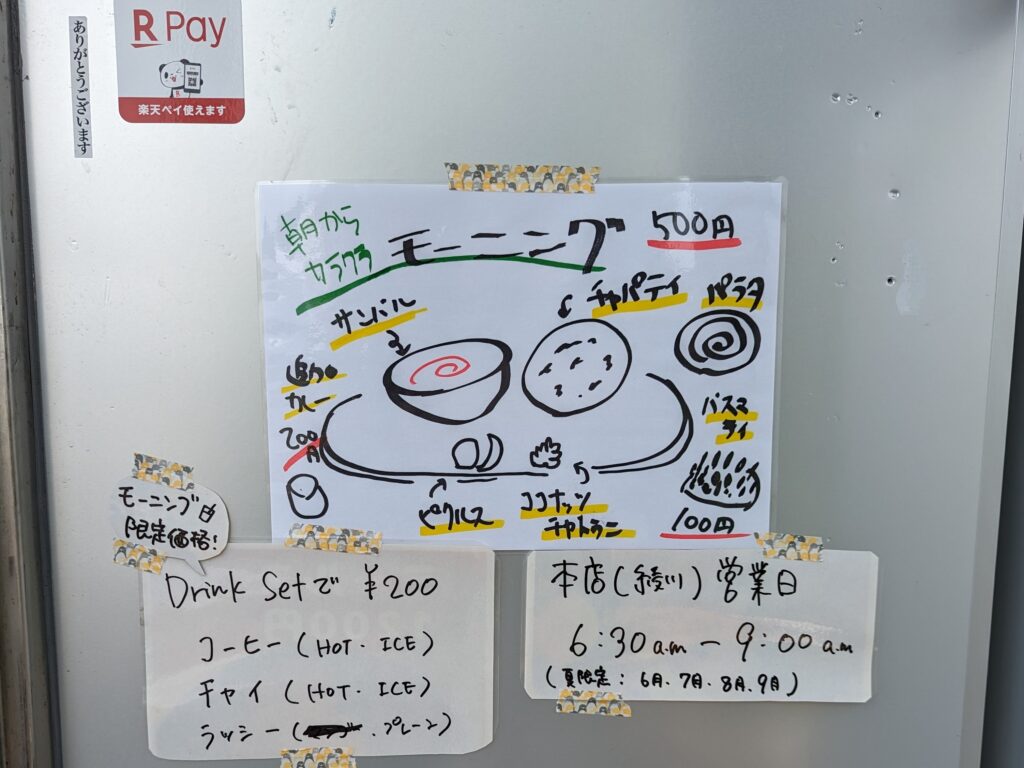 ありがとうございます
R Pay
楽天ペイ使えます
朝から
カラクラ
モーニング
500円
サンバル
チャパティ
パラタ
追加
カレー
200円
バスマティ
100円
ピクルス
ココナッツ
チャトニー
モーニング
限定価格!
Drink Setで ¥200
コーヒー (HOT・ICE)
チャイ (HOT・ICE)
ラッシー (プレーン)
本店(綾川)営業日
6:30a.m - 9:00a.m
(夏限定: 6月.7月.8月.9月)